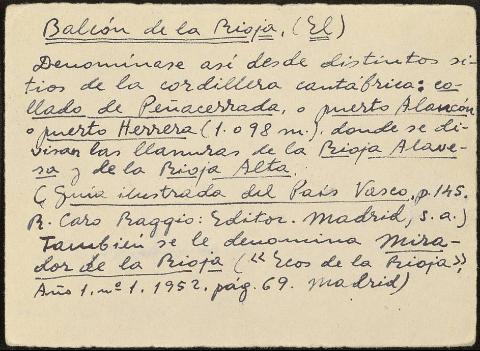 Balcón de la Rioja, (El)
Denomínase así desde distintos si-
tios de la cordillera cantábrica: co-
llado de Peñacerrada, o puerto Alancón
o puerto Herrera (1.098 m.), donde se di-
visan las llanuras de la Rioja Alave-
sa y de la Rioja Alta.
(Guía ilustrada del País Vasco, p. 145.
R. Caro Raggio: Editor. Madrid, s. a.)
También se le denomina Mira-
dor de la Rioja (<<Ecos de la Rioja>>,
Año 1. nº 1. 1952. pág. 69. Madrid)